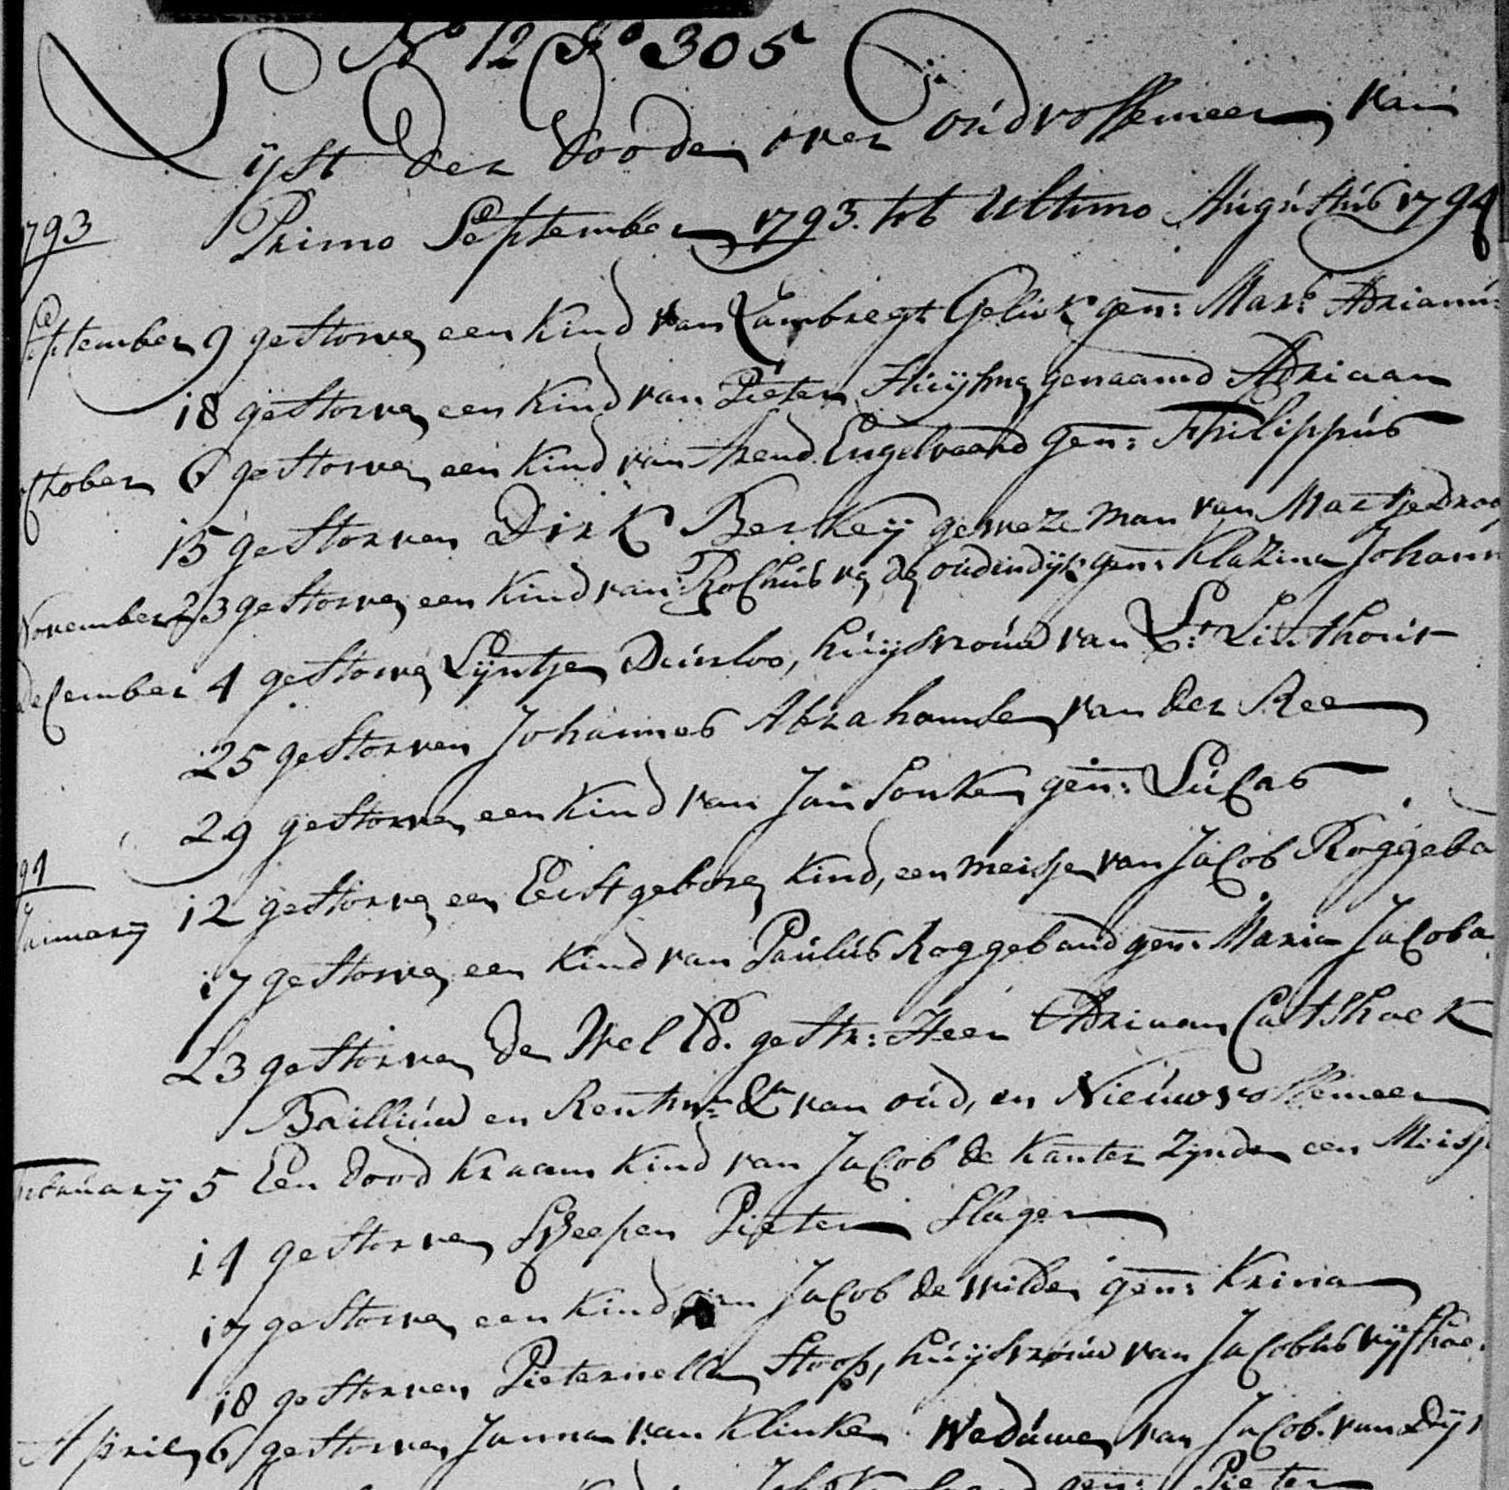 No 12 Fo 305
Lijst der Dooden over oudvossemeer, van
1793 Primo September 1793. tot Ultimo Augustus 1794
September 9 gestorven een Kind van Lambregt Gelink gen: Mar: Adrianus
18 gestorven een Kind van Pieter genaamd Adriaan
october 6 gestorven een Kind van Arend Engelvaard gen: Philippus
15 gestorven Dirk Berkeij geweze man van Martje
November 23 gestorven een Kind van Rochus van den oudendijk gen: Klazina Johann
December 4 gestorven Lijntje Duirloo, huijsvrouw van L: Linthout
25 gestorven Johannes Abrahamse van der Ree
29 gestorven een Kind van Jan Fonken gen: Lucas
94
January 12 gestorven een Eerstgeboren Kind, een meisje van Jacob Roggeba
17 gestorven een Kind van Paulus Roggeband gen: Maria Jacoba
23 gestorven De Wel Ed. gestr: Heer Adriaan Catshoek
Bailliuw en Rentmr: &a van oud, en Nieuwvossemeer
February 5 Een Dood Kraam Kind van Jacob de Kanter Zynde een Meisje
14 gestorven Scheepen Pieter Slager
17 gestorven een Kind van Jacob de wilde gen: Krina
18 gestorven Pieternella Stoop, huijsvrouw van Jacobus
April 6 gestorven Janna van Klinken Weduwe van Jacob van Dij
gen: Pieter